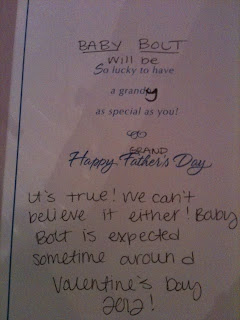 BABY BOLT
will be
So lucky to have
a grandy
as special as you!
GRAND
Happy Father's Day
It's true! We can't
believe it either! Baby
Bolt is expected
sometime around
Valentine's Day
2012!